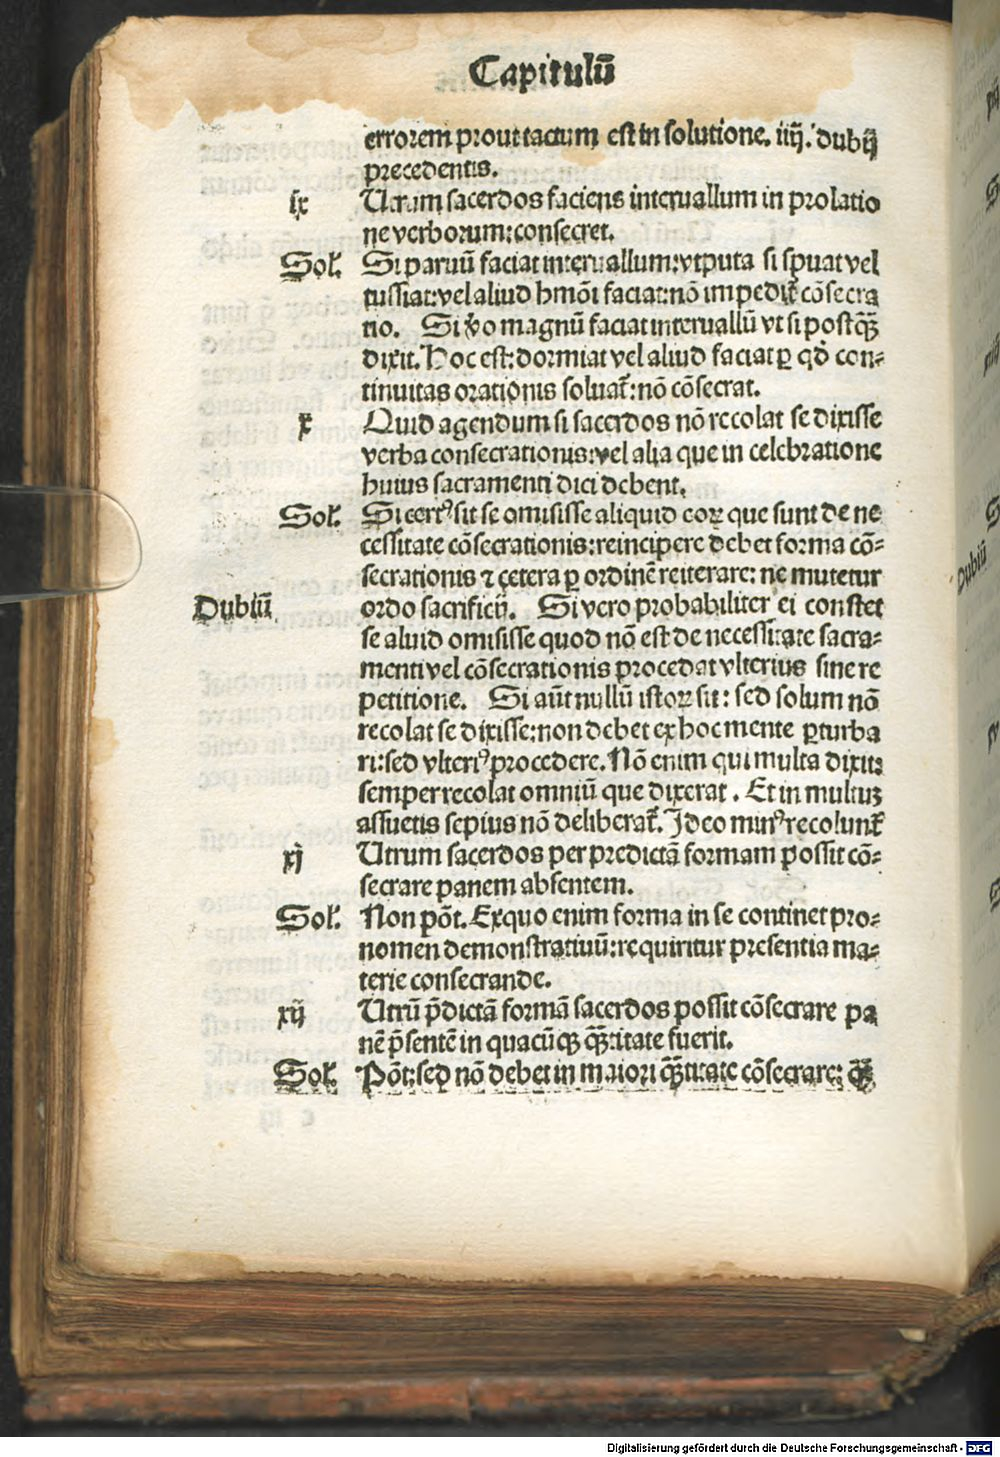 Capitulū
errorem prout tactum est in solutione. iiij. dubij
precedentis.
ix Utrum sacerdos faciens interuallum in prolatio
ne verborum: consecret.
Sol. Si paruū faciat interuallum: vtputa si spuat vel
tussiat: vel aliud hmōi faciat: nō impedit᷑ cōsecra
tio. Si v̄o magnū faciat interuallū vt si postqꝫ̄
dixit. Hoc est: dormiat vel aliud faciat ꝑ qd̓ con⸗
tinuitas orationis soluat᷑: nō cōsecrat.
x Quid agendum si sacerdos nō recolat se dixisse
verba consecrationis: vel alia que in celebratione
huius sacramenti dici debent.
Sol. Si certꝰ sit se omisisse aliquid eoꝝ que sunt de ne
cessitate cōsecrationis: reincipere debet forma cō⸗
secrationis ⁊ cetera ꝑ ordinē reiterare: ne mutetur
Dubiū ordo sacrificij. Si vero probabiliter ei constet
se aluid omisisse quod nō est de necessitate sacra⸗
menti vel cōsecrationis procedat vlterius sine re
petitione. Si aūt nullū istoꝝ sit: sed solum nō
recolat se dixisse: non debet ex hoc mente ꝑturba
ri: sed vlteriꝰ procedere. Nō enim qui multa dixit:
semper recolat omniū que dixerat. Et in multis
assuetis sepius nō deliberat᷑. Ideo minꝰ recolunt᷑
xj Utrum sacerdos per predictā formam possit cō⸗
secrare panem absentem.
Sol. Non pōt. Ex quo enim forma in se continet pro⸗
nomen demonstratiuū: requiritur presentia ma⸗
terie consecrande.
xij Utrū p̄dictā formā sacerdos possit cōsecrare pa
nē p̄sentē in quacūqꝫ qꝫ̄titate fuerit.
Sol. Pōt: sed nō debet in maiori qꝫ̄titate cōsecrare: qꝫ̄
Dubiū
Digitalisierung gefördert durch die Deutsche Forschungsgemeinschaft - DFG